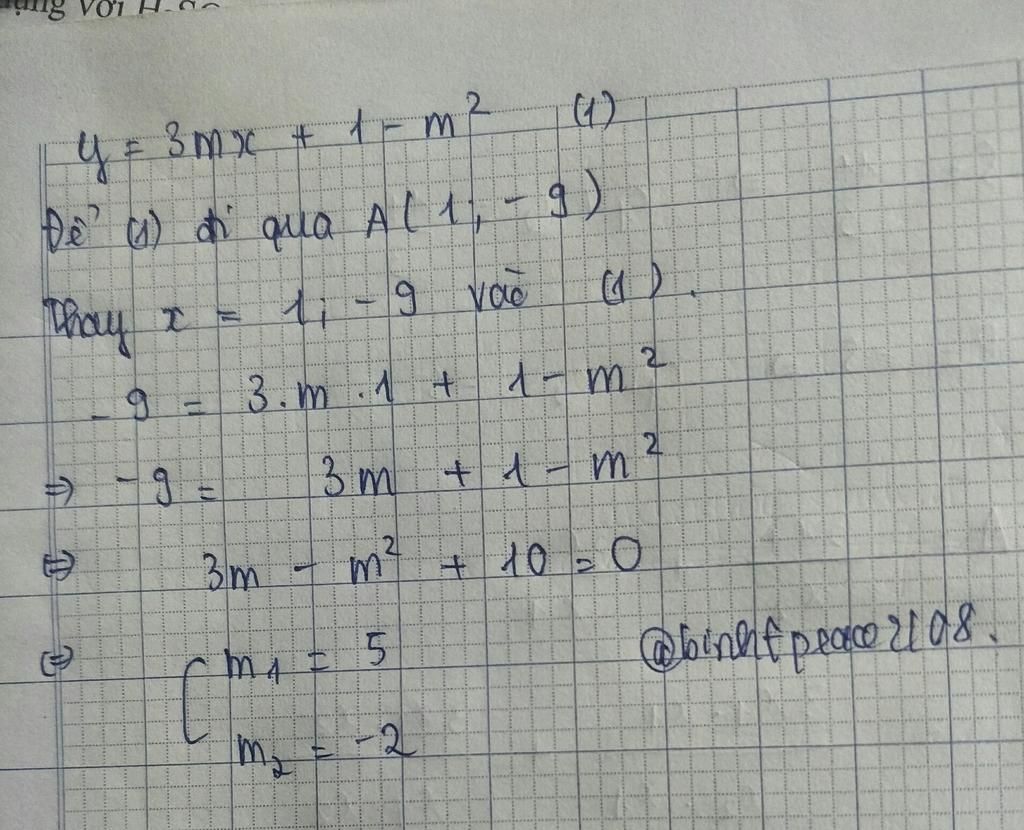 ụng với
y = 3mx + 1 - m² (1)
Để (1) đi qua A(1; -9)
Thay x = 1; -9 vào (1).
-9 = 3.m.1 + 1 - m²
⇒ -9 = 3m + 1 - m²
⇔ 3m - m² + 10 = 0
⇔ [ m₁ = 5
m₂ = -2